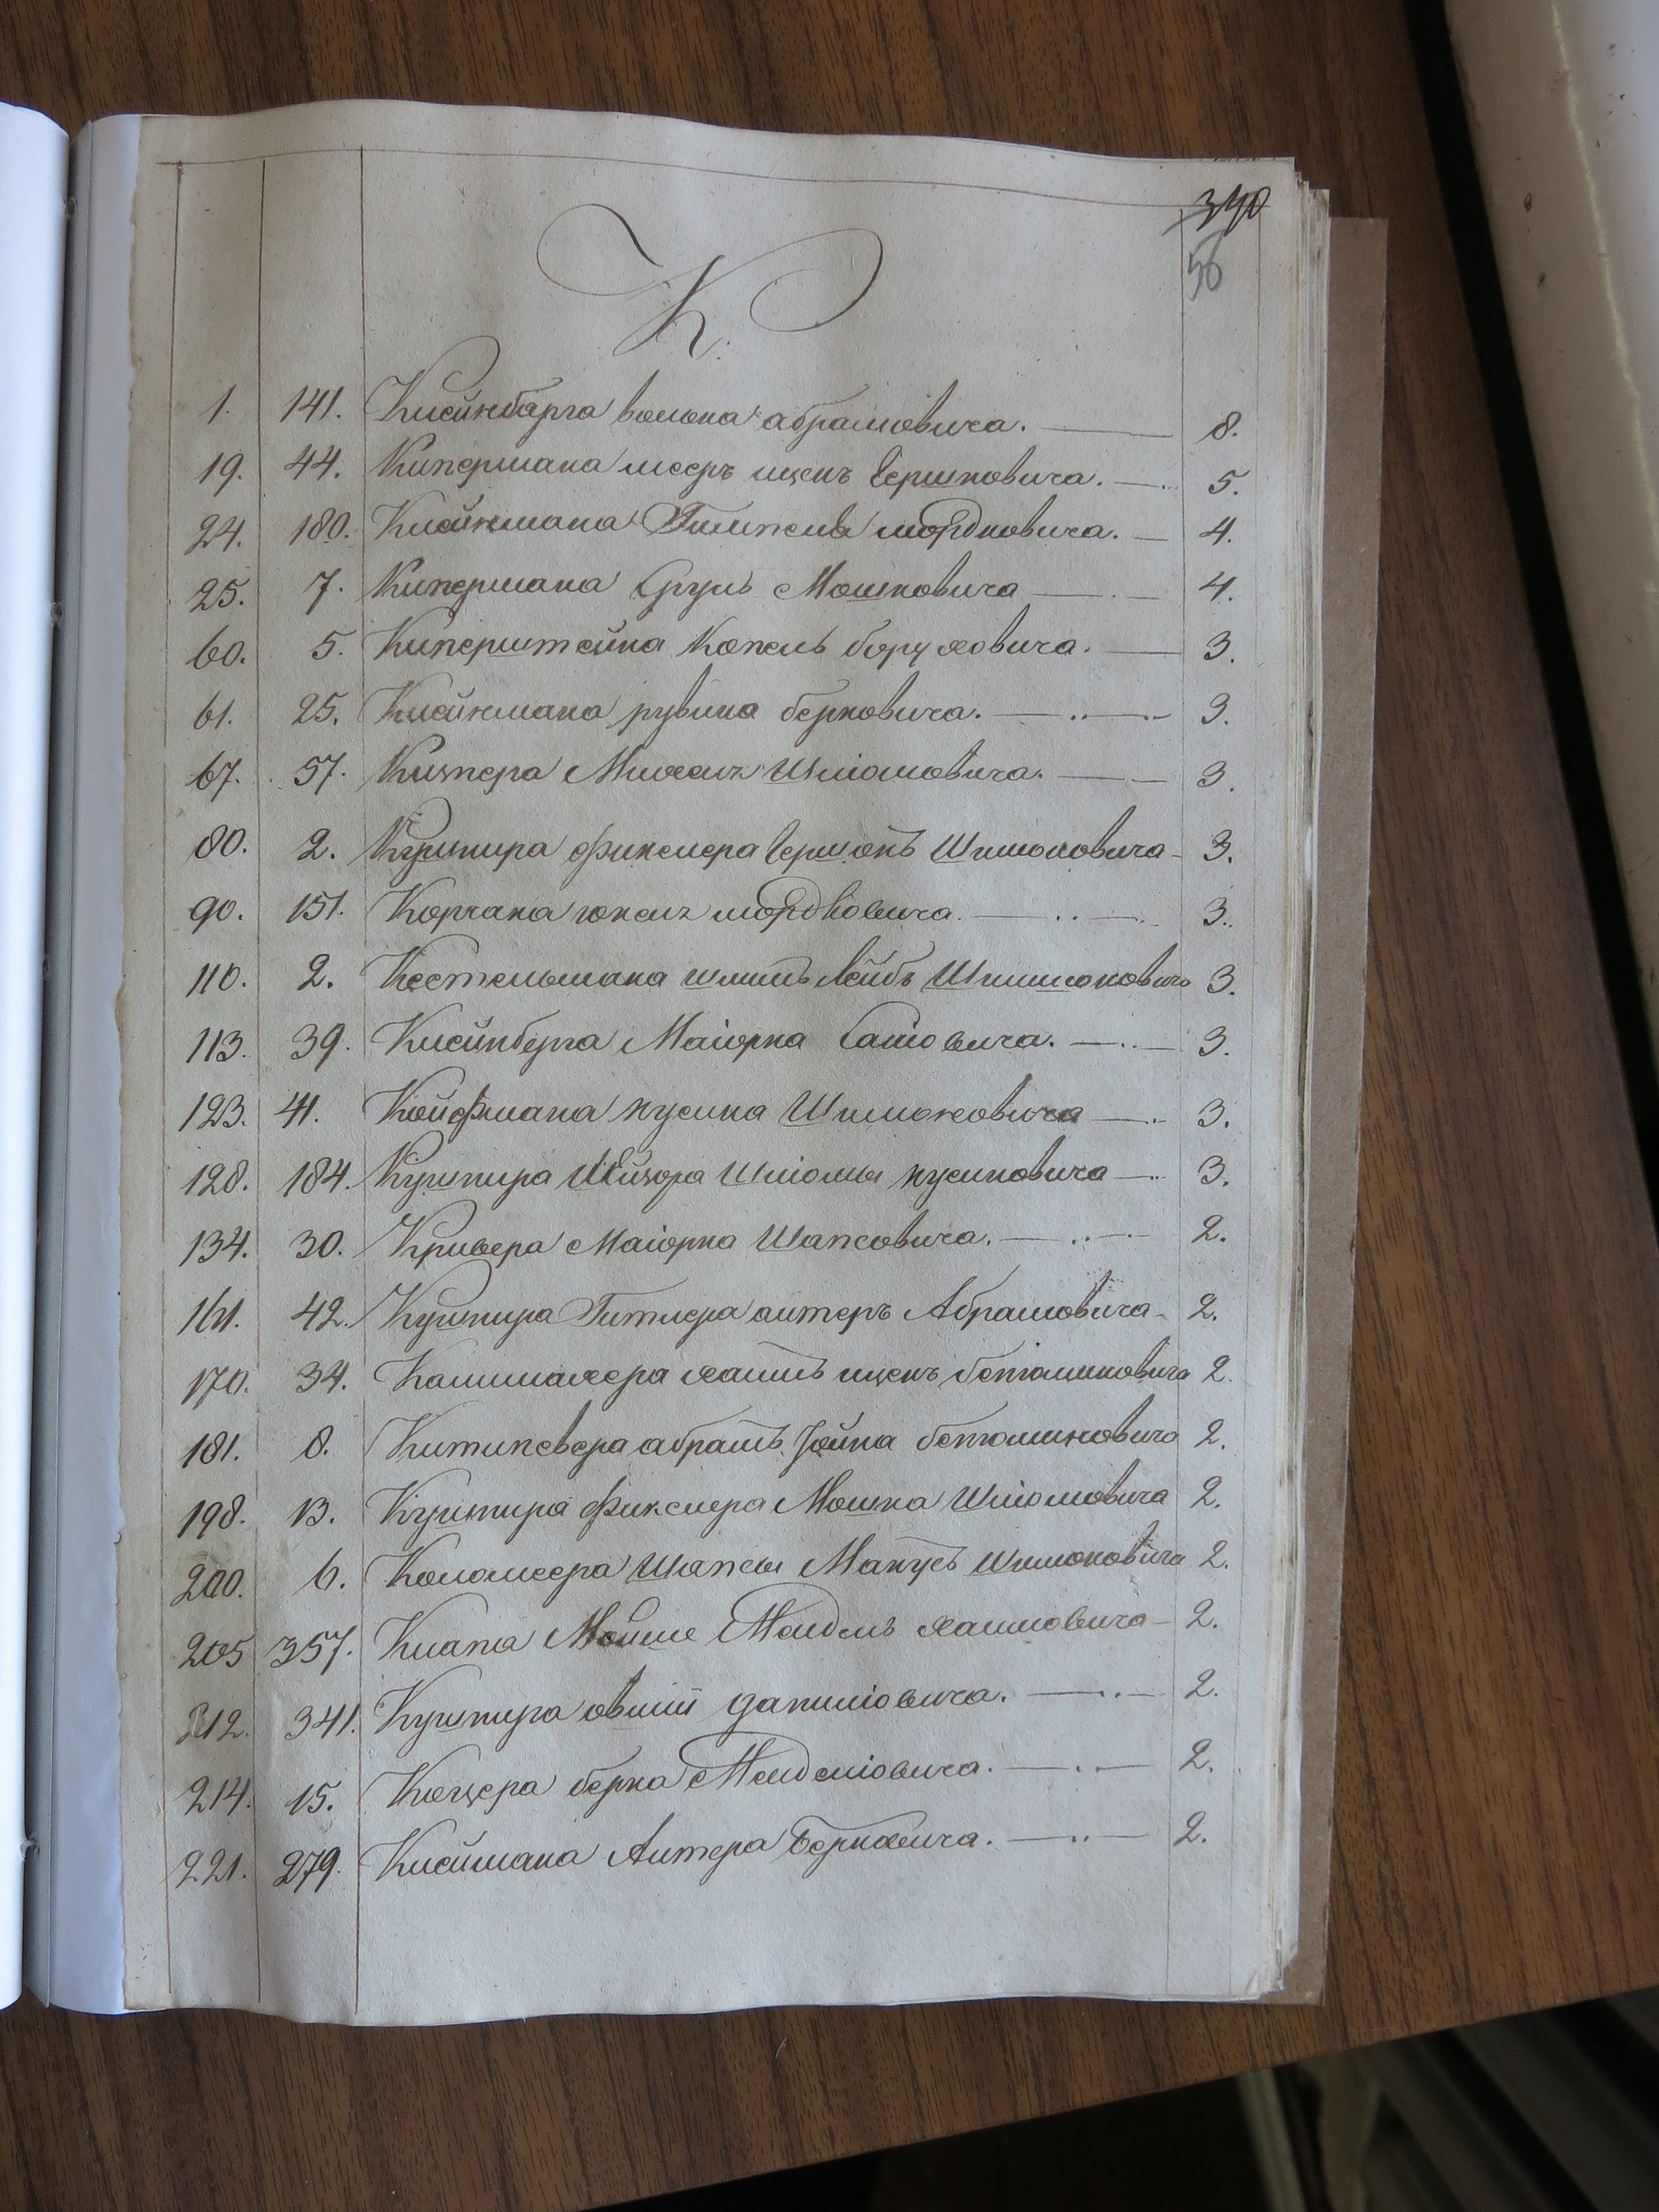 390
56
К.
1. 141. Клейнбарга волька абрамовича. 8.
19. 44. Кипермана меер ицекъ Гершковича. 5.
24. 180. Клейнмана Гимпель мордковича. 4.
25. 7. Кипермана Сруль Мошковича 4.
60. 5. Киперштейна Копель боруховича. 3.
61. 25. Клейнмана рувина берковича. 3.
67. 57. Михель Шлиомовича. 3.
80. 2. Кушнира фикслера Гершонъ Шимоновича 3.
90. 151. Корчака мордковича. 3.
110. 2. Кестельмана Лейбъ Шимшоновича 3.
113. 39. Клейнберга Маіорка 3.
123. 41. Койфмана кусиля Шимоновича 3.
128. 184. Кушнира Шліомы кусиловича 3.
134. 30. Маіорка Шапсовича. 2.
161. 42. Кушнира Гитлера алтеръ Абрамовича 2.
170. 34. хаимъ ицекъ беніоминовича 2.
181. 8. абрамъ Іойна беніоминовича 2.
198. 13. Кушнира фикслера Мошка Шліомовича 2.
200. 6. Коломеера Шапсы Манусъ Шимоновича 2.
205 357. Клапа Мойше Мендель хаимовича 2.
212. 341. Кушнира овшій даниліовича. 2.
214. 15. берка Менделіовича. 2.
221. 279. Клеймана Алтера берковича. 2.